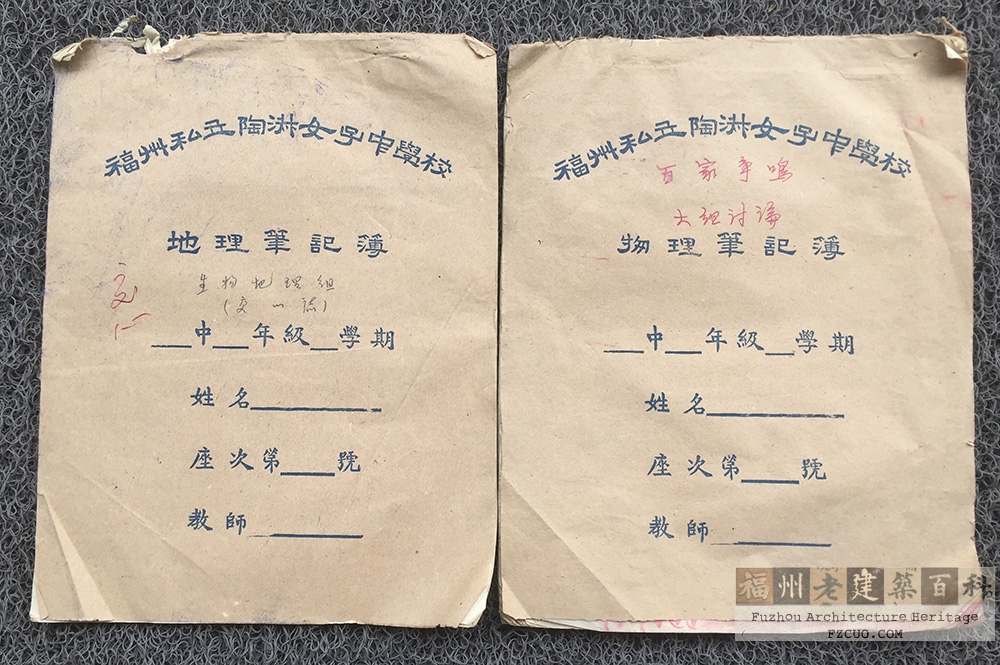 福州私立陶淑女子中學校
地理筆記簿
生物地理組
中 年級 學期
姓名
座次第 號
教師
福州私立陶淑女子中學校
百家爭鳴
大組讨論
物理筆記簿
中 年級 學期
姓名
座次第 號
教師
福州老建築百科
Fuzhou Architecture Heritage
FZCUO.COM